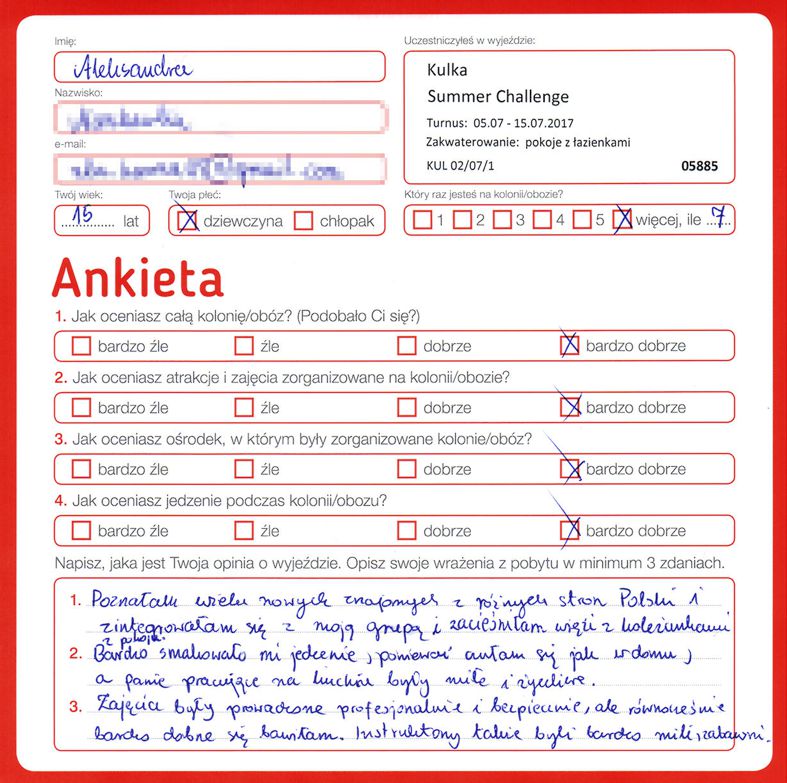 Imię:
Aleksandra
Nazwisko:
e-mail:
Twój wiek:
15 lat
Twoja płeć:
dziewczyna chłopak
Uczestniczyłeś w wyjeździe:
Kulka
Summer Challenge
Turnus: 05.07 - 15.07.2017
Zakwaterowanie: pokoje z łazienkami
KUL 02/07/1 05885
Który raz jesteś na kolonii/obozie?
1 2 3 4 5 więcej, ile ...7...
Ankieta
1. Jak oceniasz całą kolonię/obóz? (Podobało Ci się?)
bardzo źle źle dobrze bardzo dobrze
2. Jak oceniasz atrakcje i zajęcia zorganizowane na kolonii/obozie?
bardzo źle źle dobrze bardzo dobrze
3. Jak oceniasz ośrodek, w którym były zorganizowane kolonie/obóz?
bardzo źle źle dobrze bardzo dobrze
4. Jak oceniasz jedzenie podczas kolonii/obozu?
bardzo źle źle dobrze bardzo dobrze
Napisz, jaka jest Twoja opinia o wyjeździe. Opisz swoje wrażenia z pobytu w minimum 3 zdaniach.
1. Poznałam wielu nowych znajomych z różnych stron Polski i
zintegrowałam się z moją grupą i zacieśniłam więzi z koleżankami
z pokoju.
2. Bardzo smakowało mi jedzenie, ponieważ czułam się jak w domu,
a panie pracujące na kuchni były miłe i życzliwe.
3. Zajęcia były prowadzone profesjonalnie i bezpiecznie, ale równocześnie
bardzo dobrze się bawiłam. Instruktorzy także byli bardzo mili i zabawni.